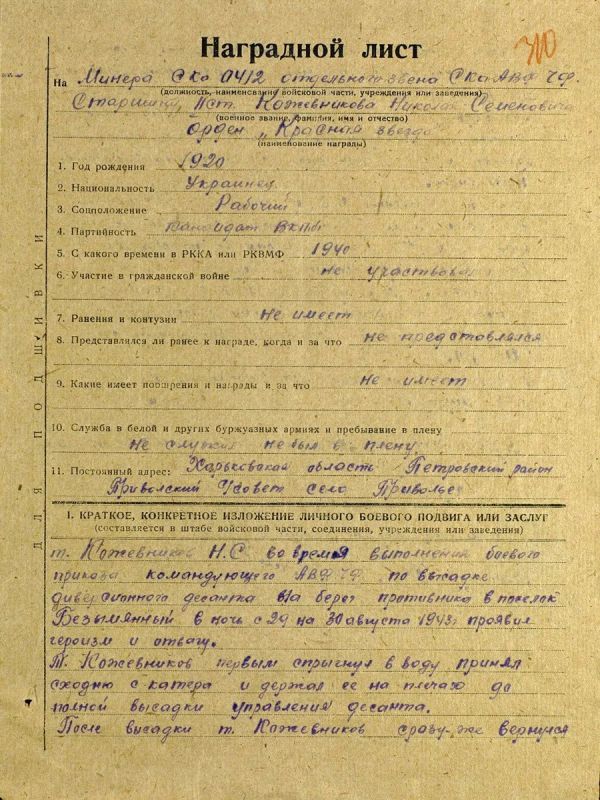 310
Наградной лист
На Минера СКа 0412 отдельного звена СКа АВФ ЧФ.
(должность, наименование войсковой части, учреждения или заведения)
Старшина, Iст. Кожевникова Николая Семеновича
(военное звание, фамилия, имя и отчество)
орден „Красная звезда"
(наименование награды)
1. Год рождения 1920
2. Национальность Украинец
3. Соцположение Рабочий
4. Партийность Кандидат ВКПб
5. С какого времени в РККА или РКВМФ 1940
6. Участие в гражданской войне не участвовал
7. Ранения и контузии не имеет
8. Представлялся ли ранее к награде, когда и за что не представлялся
9. Какие имеет поощрения и награды и за что не имеет
10. Служба в белой и других буржуазных армиях и пребывание в плену
не служил не был в плену
11. Постоянный адрес: Харьковская область Петровский район
Привольский с/совет село Приволье
ДЛЯ ПОДШИВКИ
I. КРАТКОЕ, КОНКРЕТНОЕ ИЗЛОЖЕНИЕ ЛИЧНОГО БОЕВОГО ПОДВИГА ИЛИ ЗАСЛУГ
(составляется в штабе войсковой части, соединения, учреждения или заведения)
т. Кожевников Н.С. во время выполнения боевого
приказа командующего АВФ ЧФ по высадке
диверсионного десанта на берег противника в поселок
Безымянный в ночь с 29 на 30 августа 1943г проявил
героизм и отвагу.
Т. Кожевников первым спрыгнул в воду принял
сходню с катера и держал ее на плечах до
полной высадки управления десанта.
После высадки т. Кожевников сразу-же вернулся